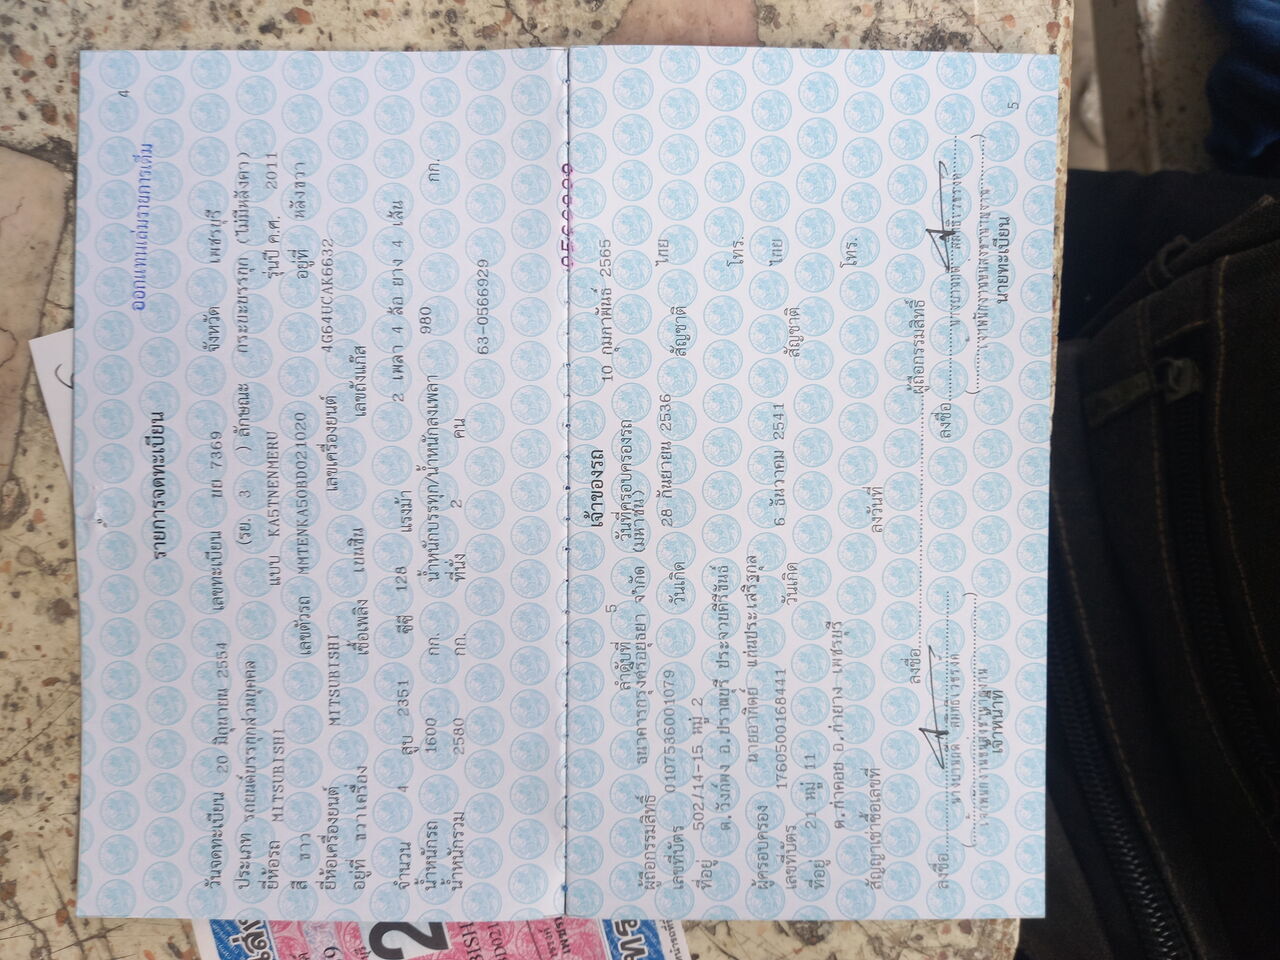 4
ออกแทนเล่มรายการเต็ม
รายการจดทะเบียน
วันจดทะเบียน 20 มิถุนายน 2554 เลขทะเบียน ขย 7369 จังหวัด เพชรบุรี
ประเภท รถยนต์บรรทุกส่วนบุคคล (รย. 3 ) ลักษณะ กระบะบรรทุก (ไม่มีหลังคา)
ยี่ห้อรถ MITSUBISHI แบบ KA5TNENMERU รุ่นปี ค.ศ. 2011
สี ขาว เลขตัวรถ MMTENKA50BD021020 อยู่ที่ หลังขวา
ยี่ห้อเครื่องยนต์ MITSUBISHI เลขเครื่องยนต์ 4G64UCAK6632
อยู่ที่ ขวาเครื่อง เชื้อเพลิง เบนซิน เลขถังแก๊ส
จำนวน 4 สูบ 2351 ซีซี 128 แรงม้า 2 เพลา 4 ล้อ ยาง 4 เส้น
น้ำหนักรถ 1600 กก. น้ำหนักบรรทุก/น้ำหนักลงเพลา 980 กก.
น้ำหนักรวม 2580 กก. ที่นั่ง 2 คน
63-0566929
เจ้าของรถ
ลำดับที่ 5 วันที่ครอบครองรถ 10 กุมภาพันธ์ 2565
ผู้ถือกรรมสิทธิ์ ธนาคารกรุงศรีอยุธยา จำกัด (มหาชน)
เลขที่บัตร 0107536001079 วันเกิด 28 กันยายน 2536 สัญชาติ ไทย
ที่อยู่ 502/14-15 หมู่ 2
ต.วังก์พง อ.ปราณบุรี ประจวบคีรีขันธ์ โทร.
ผู้ครอบครอง นายอาทิตย์ แก่นประเสริฐกุล
เลขที่บัตร 1760500168441 วันเกิด 6 ธันวาคม 2541 สัญชาติ ไทย
ที่อยู่ 21 หมู่ 11
ต.ท่าคอย อ.ท่ายาง เพชรบุรี โทร.
สัญญาเช่าซื้อเลขที่ ลงวันที่
ลงชื่อ ผู้ถือกรรมสิทธิ์
ลงชื่อ ลงชื่อ
เจ้าหน้าที่ นายทะเบียน
5